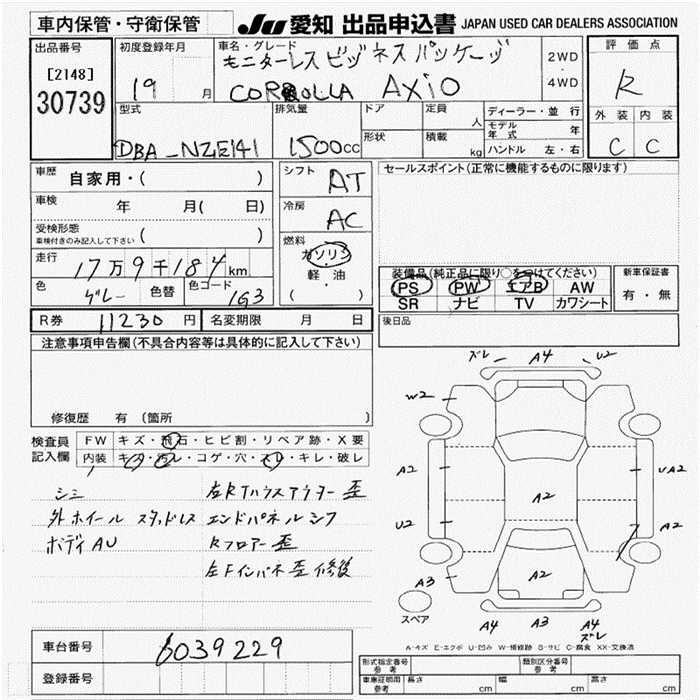 車内保管・守衛保管
JU 愛知 出品申込書 JAPAN USED CAR DEALERS ASSOCIATION
出品番号
[2148]
30739
初度登録年月
19 月
車名・グレード
モニターレス ビジネスパッケージ
COROLLA AXIO
2WD
・
4WD
評価点
R
外装 内装
C C
型式
DBA-NZE141
排気量
1500cc
ドア
定員
人
形状
積載
kg
ディーラー・並行
モデル年式 年
ハンドル 左・右
車歴
自家用・( )
車検
年 月( 日)
受検形態
車検付きのみ記入して下さい ( )
走行
17万9千184km
色
グレー
色替
色コード
1G3
シフト
AT
冷房
AC
燃料
ガソリン
・
軽油
( ・ )
セールスポイント(正常に機能するものに限ります)
装備品(純正品に限り○をつけてください)
PS PW エアB AW
SR ナビ TV カワシート
新車保証書
有・無
R券 11230円 名変期限 月 日
後日品
注意事項申告欄(不具合内容等は具体的に記入して下さい)
修復歴 有 (箇所 )
検査員記入欄
FW キズ・飛石・ヒビ割・リペア跡・X要
内装 キズ・汚レ・コゲ・穴・スレ・キレ・破レ
シミ 左Rトハウスアウター歪
外ホイール スタッドレス エンドパネルシワ
ボディAU Rフロアー歪
左Fインパネ歪修復
ズレ A4 U2
W2
A2
A2
UA2
U2
A2
A3
A2
スペア
A4 A3 A4
ズレ
A-キズ E-エクボ U-凹み W-補修跡 S-サビ C-腐食 XX-交換済
車台番号
6039229
登録番号
形式指定番号 参考
類別区分番号 参考
車庫証明用 参考 長さ cm 幅 cm 高さ cm